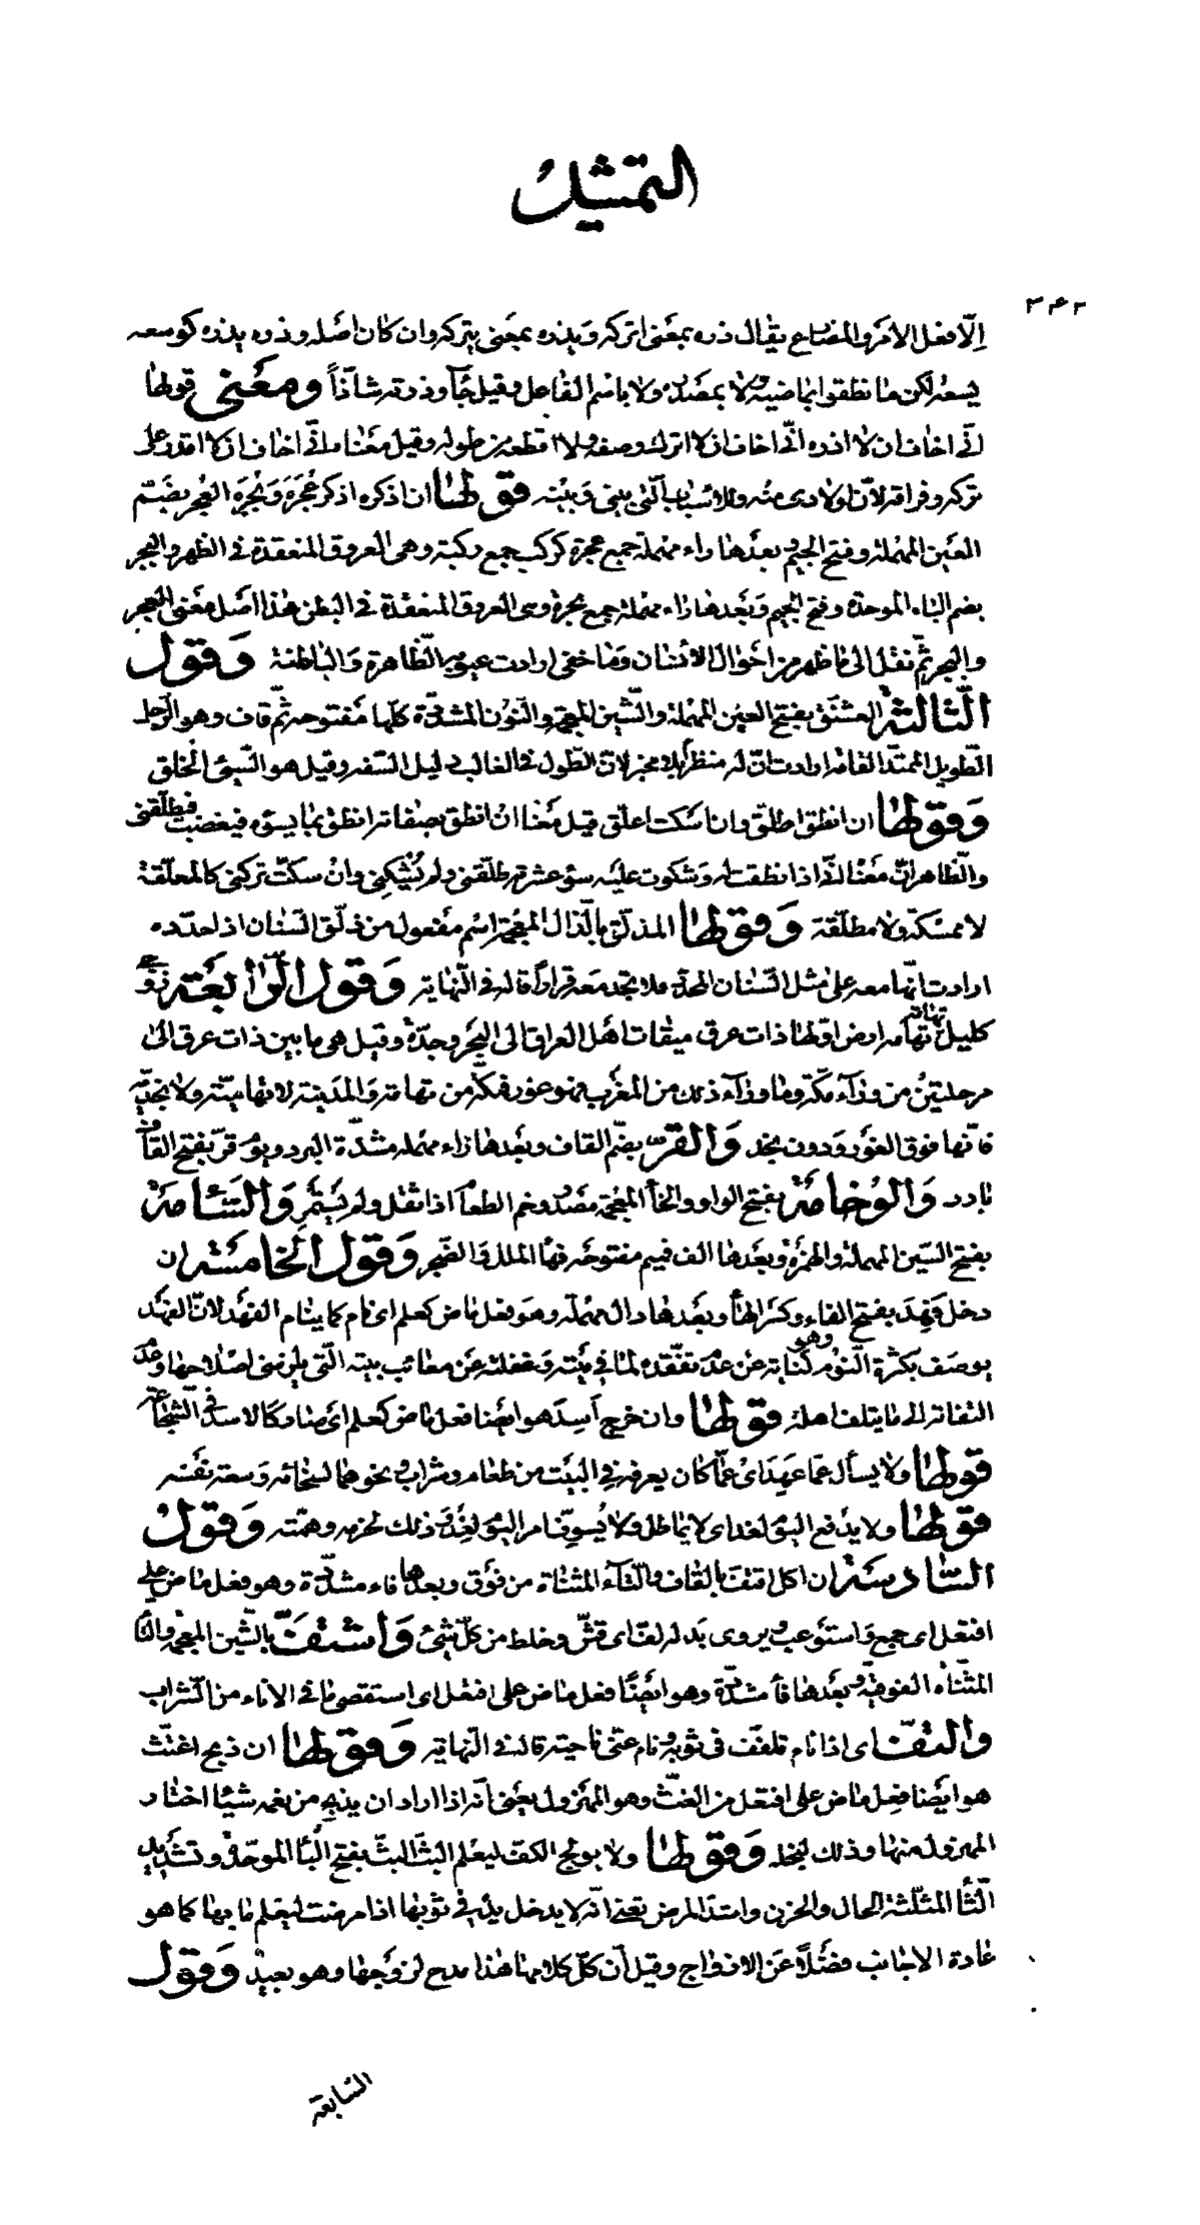 التمثيل
٢٤٢
الّا فعل الامر والمضارع يقال ذره بمعنى اتركه ويذره بمعنى يتركه وان كان اصله وذره يذره كوسعه
يسعه لكن ما نطقوا بماضيه ولا بمصدره ولا باسم الفاعل وقيل جآء وذرته شاذاً ومعنى قولها
انّي اخاف ان لا اذره انّي اخاف ان لا اترك وصفه ولا اقطعه من طوله وقيل معناه انّي اخاف ان لا اقدر على
تركه وفراقه لانّ اولادى منه وللاسباب الّتى بينى وبينه فقولها ان اذكره اذكر عُجَرَه وبُجَرَه العُجر بضمّ
العين المهملة وفتح الجيم وبعدها راء مهملة جمع عجرة كركب جمع ركبة وهى العروق المنعقدة فى الظهر والبجر
بضم الباء الموحدة وفتح الجيم وبعدها راء مهملة جمع بجرة وهى العروق المنعقدة فى البطن هذا اصل معنى العجر
والبجر ثمّ نقل الى ما ظهر من احوال الانسان وما خفى ارادت عيوبه الظّاهرة والباطنة وقول
الثّالثة العشنّق بفتح العين المهملة والشّين المعجمة والنّون المشدّدة كلّها مفتوحه ثمّ قاف وهو الرّجل
الطّويل الممتدّ القامة ارادت انّ له منظراً بلا مخبر لانّ الطّول فى الغالب دليل السّفه وقيل هو السّيئ الخلق
وقولها ان انطق اطلّق وان اسكت اعلّق قيل معناه ان انطق بصفاته انطق بما يسوءه فيغضب فيطلّقنى
والظّاهر انّ معناه انّى اذا نطقت له وشكوت عليه سوء عشرته طلّقنى ولم يُشكِنى وان سكتّ تركنى كالمعلّقة
لا ممسكة ولا مطلّقة وقولها المذلّق بالذّال المعجمة اسم مفعول من ذلّق السّنان اذا حدّده
ارادت انّها معه على مثل السّنان المحدّد فلا تجد معه قراراً قاله فى النّهاية وقول الرّابعة زوجى
كليل تهامه تهامة ارض اوّلها ذات عرق ميقات اهل العراق الى البحر وجدّة وقيل هى ما بين ذات عرق الى
مرحلتين من ورآء مكّة وما ورآء ذلك من المغرب فهو غور فمكّة من تهامة والمدينة لا تهاميّة ولا نجديّة
فانّها فوق الغور ودون نجد والقرّ بضمّ القاف وبعدها راء مهمله مشدّدة البرد ويوم قرّ بفتح القاف
بارد والوخامة بفتح الواو والخاء المعجمة مصدر وخم الطعام اذا ثقل ولم يستمر والسّئامة
بفتح السّين المهملة والهمزة وبعدها الف فميم مفتوحه فهاء الملل والضّجر وقول الخامسة ان
دخل فَهِدَ بفتح الفاء وكسر الهاء وبعدها دال مهملة وهو فعل ماض كعلم اى نام كما ينام الفهد لانّ الفهد
يوصف بكثرة النّوم وهو كناية عن عدم تفقّده لما فى بيته وغفلته عن معائب بيته الّتى يلزمنى اصلاحها وعدم
التفاته الى ما يتلف اهله فقولها وان خرج اَسِدَ هو ايضا فعل ماض كعلم اى صار كالاسد فى الشّجاعة
قولها ولا يسأل عمّا عهد اى عمّا كان يعرفه فى البيت من طعام وشراب ونحوهما لسخائه وسعة نفسه
فقولها ولا يدفع اليوم لغد اى لا يماطل ولا يُسوّف امر اليوم لغد وذلك لحزمه وهمّته وقول
السّادسة ان اكل اقتفّ بالقاف والتّآء المثنّاة من فوق وبعدها فاء مشدّدة وهو فعل ماض على
افتعل اى جمع واستوعب ويروى بدله لفّ اى قشّ وخلط من كلّ شئ واشتفّ بالشّين المعجمة والتّاء
المثنّاة الفوقيّة وبعدها فاء مشدّدة وهو ايضًا فعل ماض على افتعل اى استقصى ما فى الاناء من الشّراب
والتفّ اى اذا نام تلفّف فى ثوبه ونام عنّى ناحية قاله فى النّهاية وقولها ان ذبح اغتثّ
هو ايضا فعل ماض على افتعل من الغثّ وهو المهزول يعنى انّه اذا اراد ان يذبح من نعمه شيئا اختار
المهزولة منها وذلك لبخله وقولها ولا يولج الكفّ ليعلم البثّ البثّ بفتح الباء الموحّدة وتشديد
الثّاء المثلّثة الحال والحزن واشتداد المرض تعنى انّه لا يدخل يده فى ثوبها اذا مرضت ليعلم ما بها كما هو
عادة الاجانب فضلًا عن الازواج وقيل ان كلّ كلامها هذا مدح لزوجها وهو بعيد وقول
السّابعة